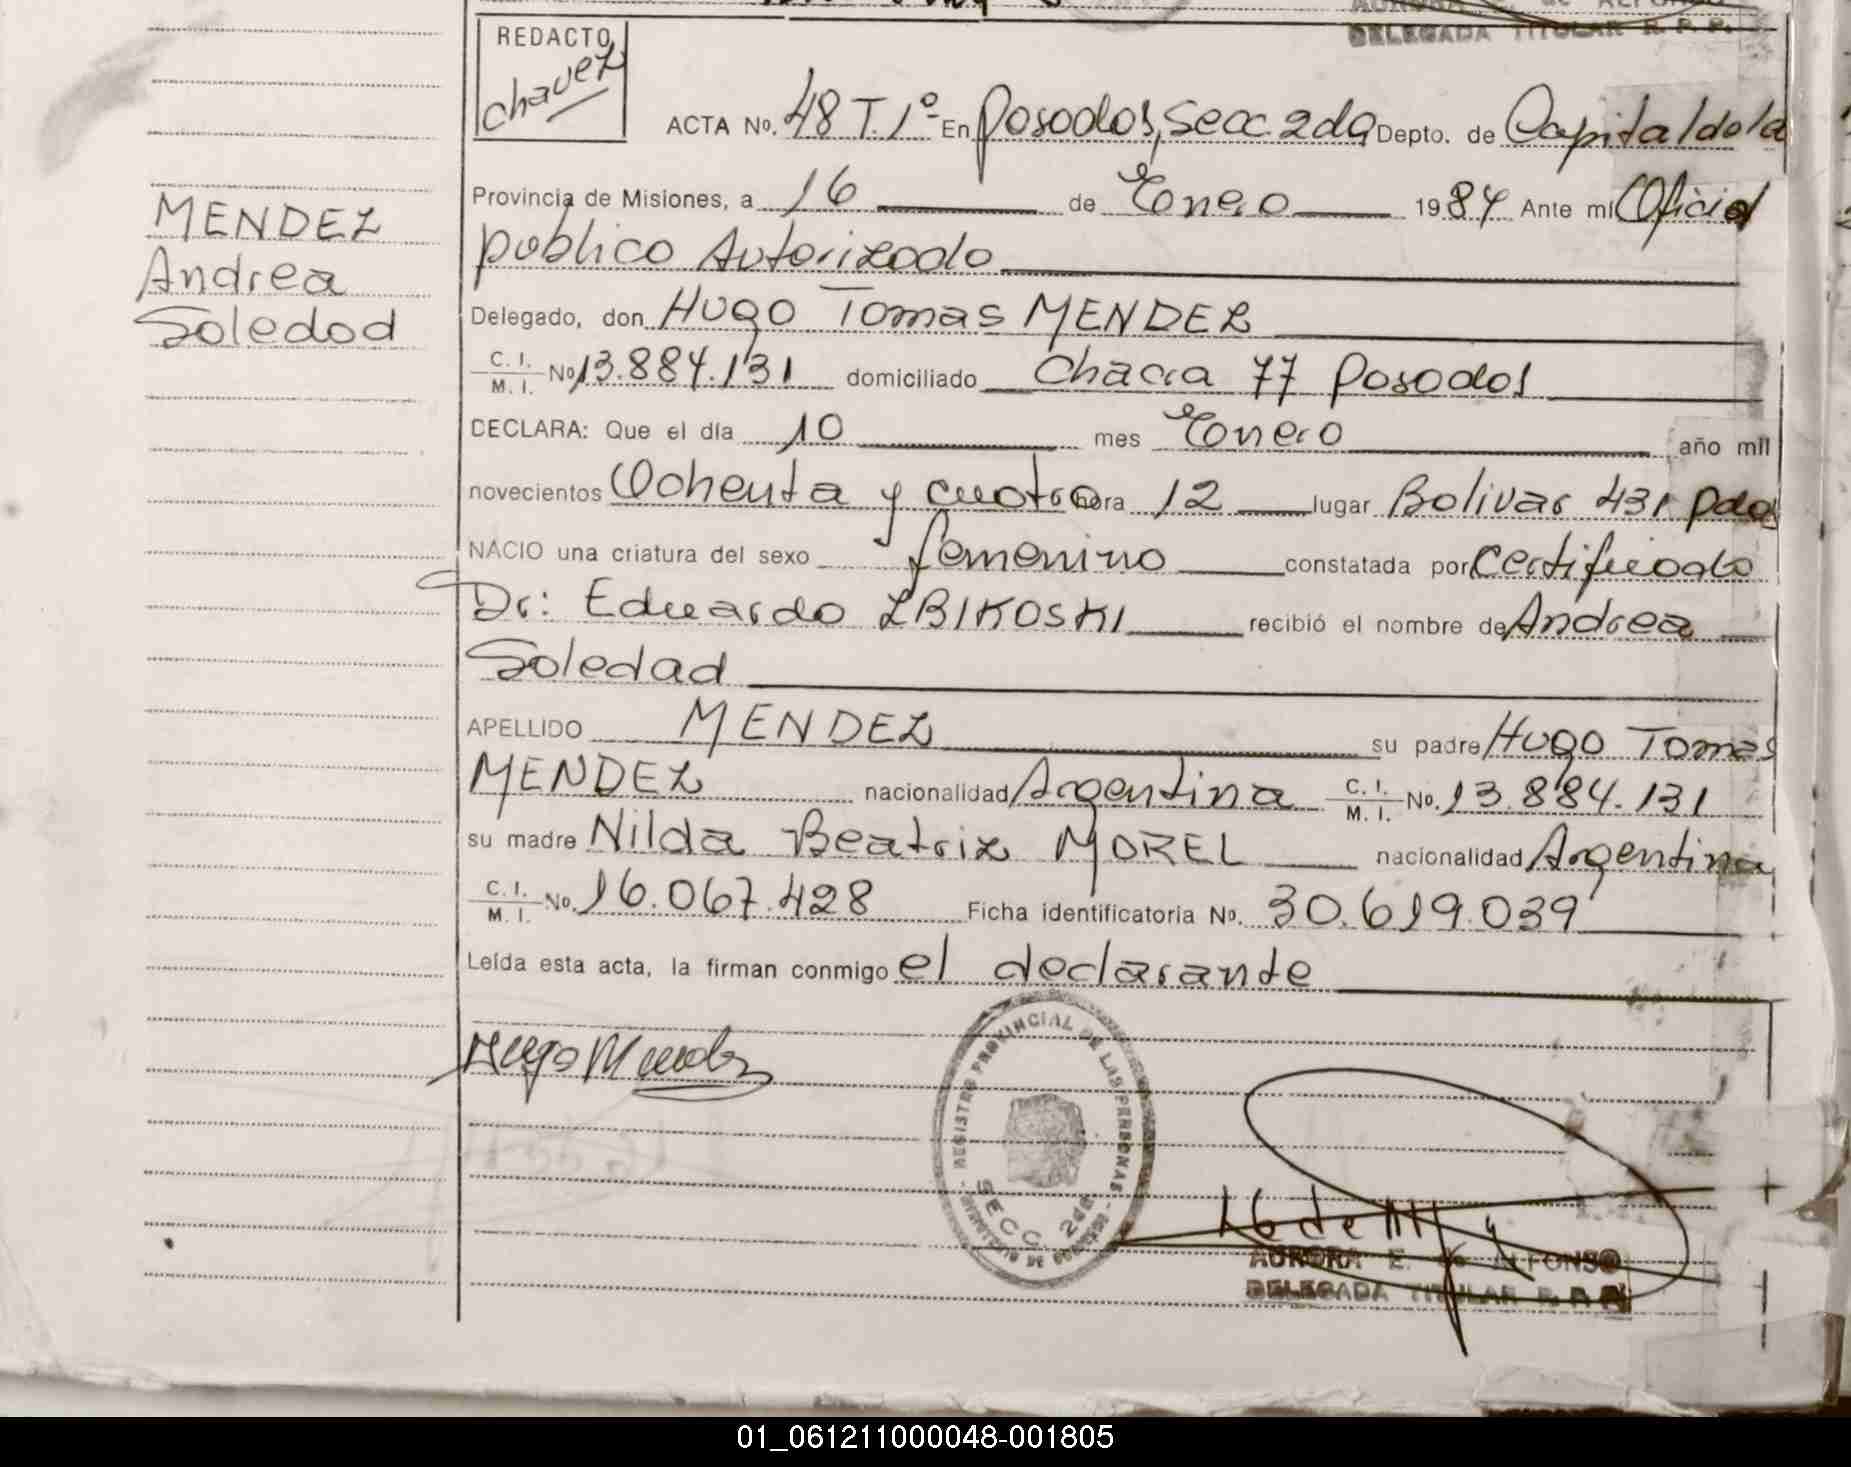 DELEGADA TITULAR R. P. P.
REDACTO
Chavez
ACTA No. 48 T. 1º En Posadas, Secc. 2da Depto. de Capital de la
Provincia de Misiones, a 16 de Enero 1984 Ante mí Oficial
público Autorizado
MENDEZ
Andrea
Soledad
Delegado, don Hugo Tomas MENDEZ
C. I. M. I. No 13.884.131 domiciliado Chacra 77 Posadas
DECLARA: Que el día 10 mes Enero año mil
novecientos Ochenta y cuatro hora 12 lugar Bolivar 431 Pdas
NACIO una criatura del sexo femenino constatada por Certificado
Dr: Eduardo ZBIKOSKI recibió el nombre de Andrea
Soledad
APELLIDO MENDEZ su padre Hugo Tomas
MENDEZ nacionalidad Argentina C. I. M. I. No. 13.884.131
su madre Nilda Beatriz MOREL nacionalidad Argentina
C. I. M. I. No. 16.067.428 Ficha identificatoria No. 30.619.039
Leída esta acta, la firman conmigo el declarante
Hugo Mendez
REGISTRO PROVINCIAL DE LAS PERSONAS
SECC. 2da
AURORA E. de ALFONSO
DELEGADA TITULAR R. P. P.
01_061211000048-001805